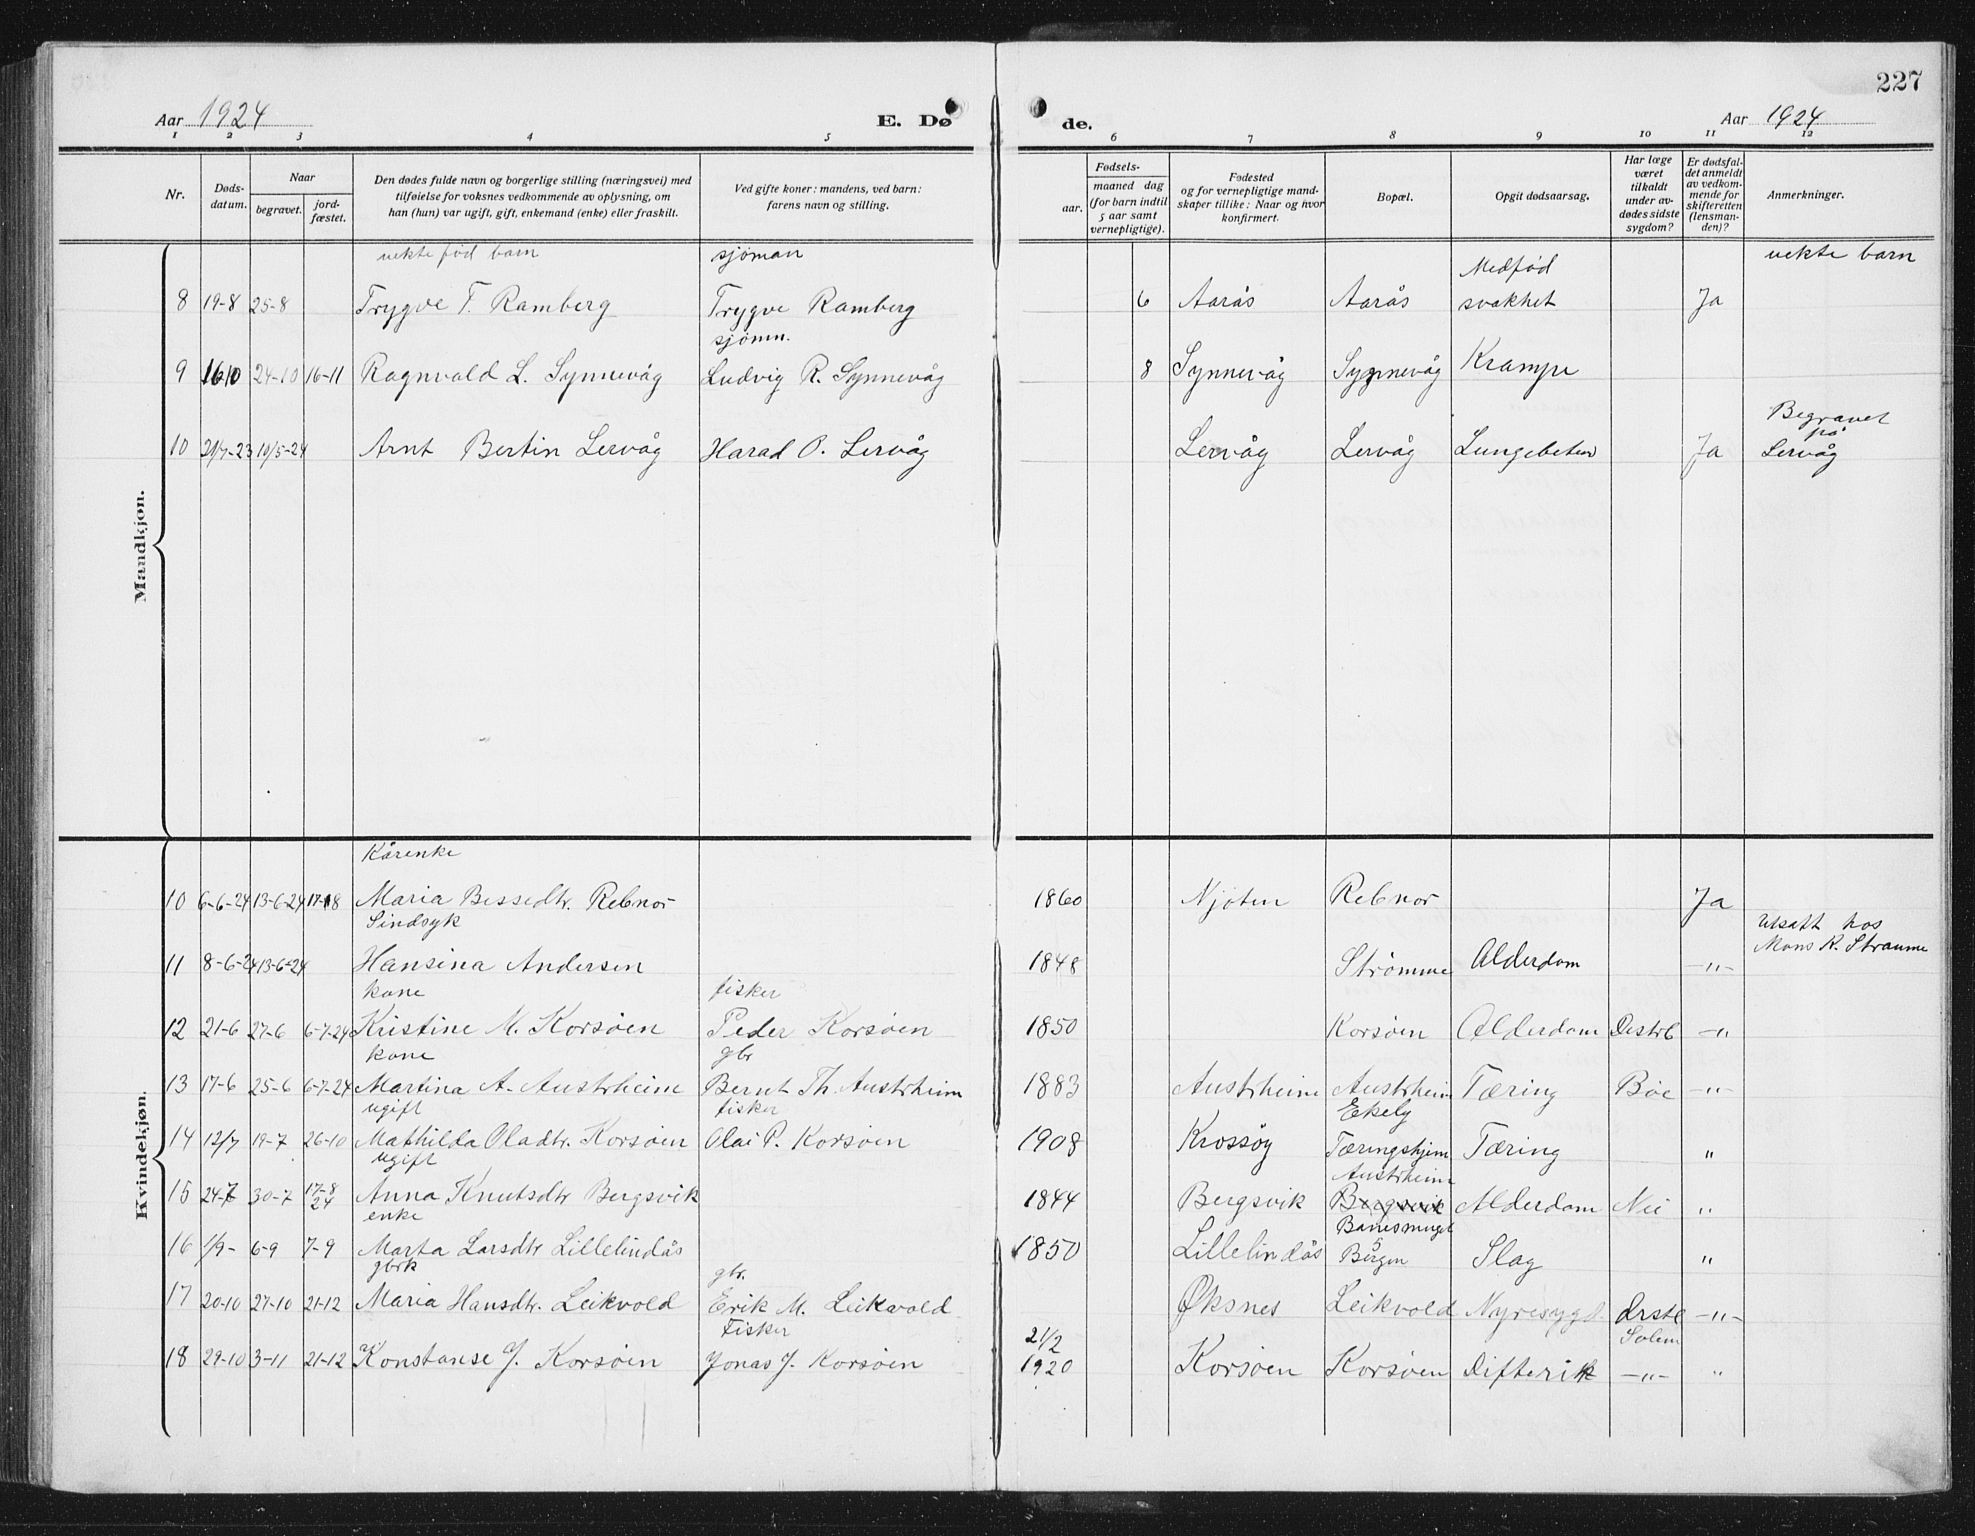 227
Aar 1924
E. Dø
de.
Aar 1924
1 2 3 4 5 6 7 8 9 10 11 12
Nr.
Døds-
datum.
Naar
begravet.
jord-
fæstet.
Den dødes fulde navn og borgerlige stilling (næringsvei) med
tilføielse for voksnes vedkommende av oplysning, om
han (hun) var ugift, gift, enkemand (enke) eller fraskilt.
Ved gifte koner: mandens, ved barn:
farens navn og stilling.
Fødsels-
aar.
maaned dag
(for barn indtil
5 aar samt
vernepligtige).
Fødested
og for vernepligtige mand-
skaper tillike: Naar og hvor
konfirmert.
Bopæl.
Opgit dødsaarsag.
Har læge
været
tilkaldt
under av-
dødes sidste
sygdom?
Er dødsfal-
det anmeldt
av vedkom-
mende for
skifteretten
(lensman-
den)?
Anmerkninger.
Mandkjøn.
uekte fød barn sjöman Medfød uekte barn
8 19-8 25-8 Trygve T. Ramberg Trygve Ramberg 6 Aarås Aarås svakhet Ja
sjömn.
9 16 10 24-10 16-11 Ragnvald L. Synnevåg Ludvig R. Synnevåg 8 Synnevåg Synnevåg Krampe
Begravet
på
10 21/7-23 10/5-24 Arnt Bertin Lervåg Harad O. Lervåg Lervåg Lervåg Lungebeten Ja Lervåg
Kvindekjøn.
Kårenke
10 6-6-24 13-6-24 17-18 Maria Bessedtr. Rebnor 1860 Njøten Rebnor Ja
Sindsyk Utsatt hos
Mons R. Straume
11 8-6-24 13-6-24 Hansina Andersen 1848 Strømme Alderdom -"-
kone fisker
12 21-6 27-6 6-7-24 Kristine M. Korsøen Peder Korsøen 1850 Korsøen Alderdom Distrl -"
kone gbr
13 17-6 25-6 6-7-24 Martina A. Austrheim Bernt Th. Austrheim 1883 Austrheim Austrheim Tæring Böe -"-
ugift fisker Ekely
14 12/7 19-7 26-10 Mathilda Oladtr. Korsøen Olai P. Korsøen 1908 Krossøy Tæringshjem Tæring "
ugift Austrheim
15 24-7 30-7 17-8
24 Anna Knutsdtr Bergsvik 1844 Bergsvik Bergsvik Alderdom Nei "
enke
16 1/9- 6-9 7-9 Marta Larsdtr Lillelindås 1850 Lillelindås Bergen Slag "
gbrk gbr.
17 20-10 27-10 21-12 Maria Hansdtr. Leikvold Erik M. Leikvold Øksnes Leikvold Nyresygd. Ørsta -"-
Fisker 21/2 Solem
18 29-10 3-11 21-12 Konstanse J. Korsøen Jonas J. Korsøen 1920 Korsøen Korsøen Difterik -"- "